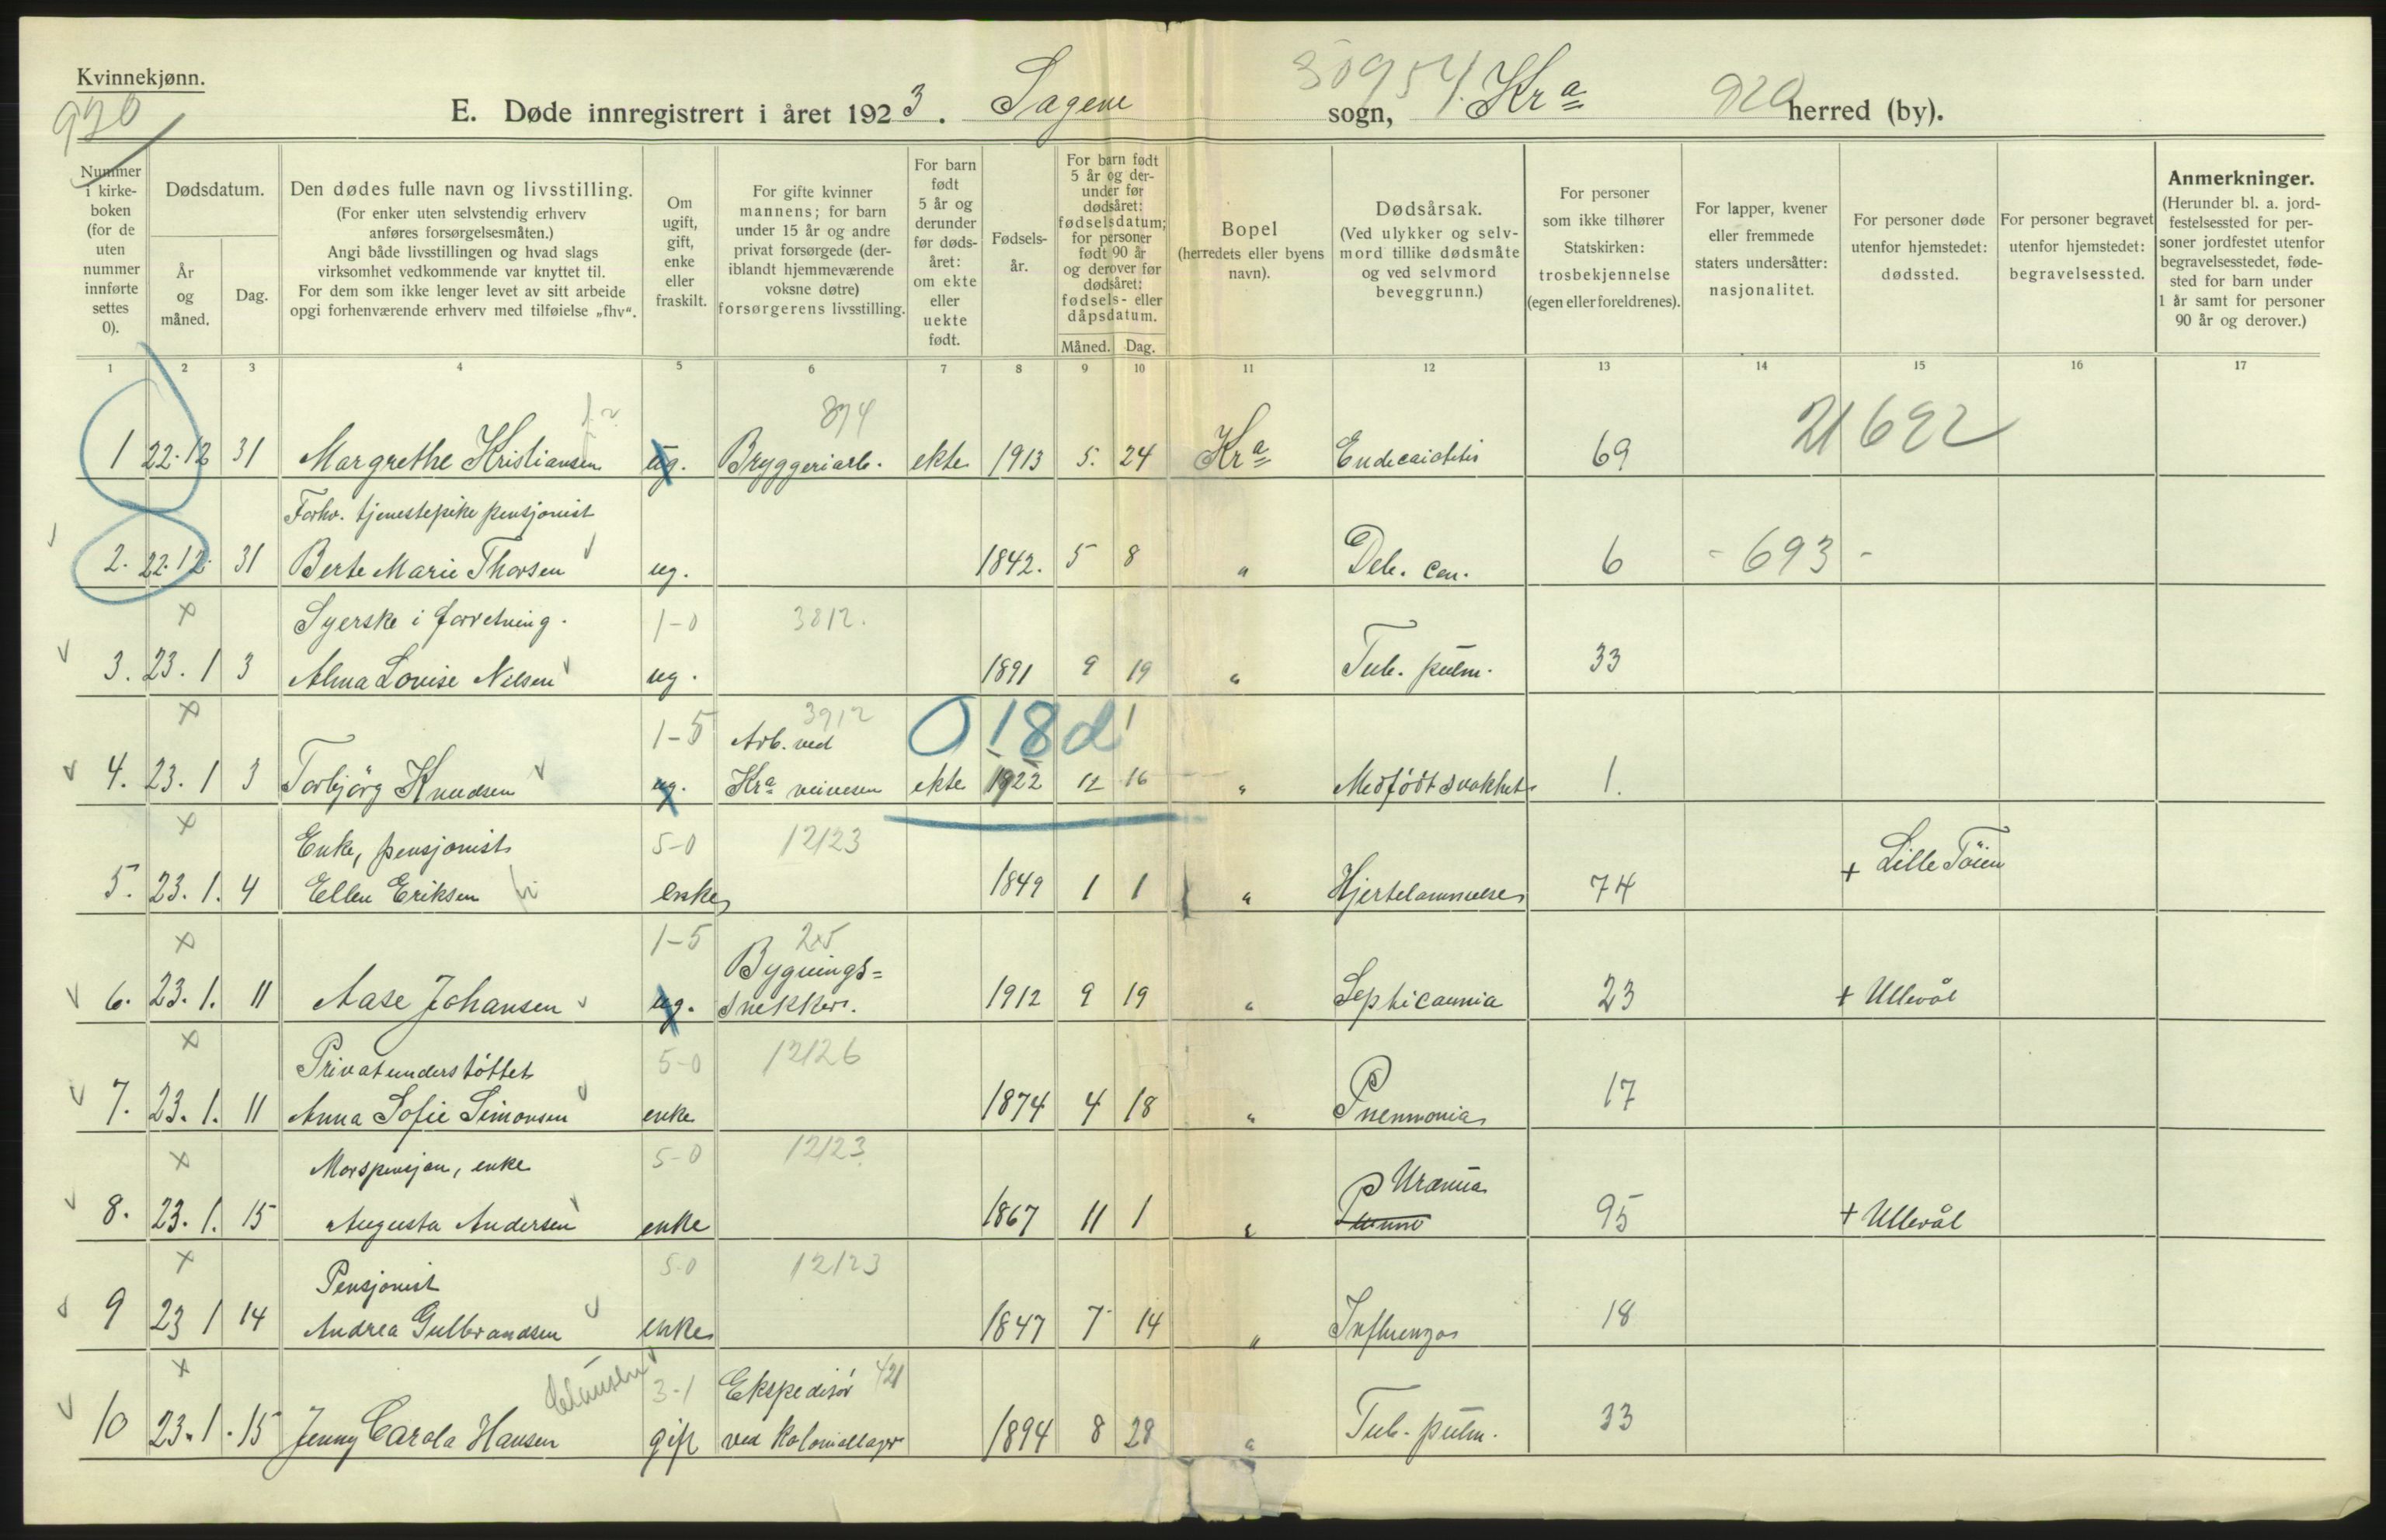 Kvinnekjønn.
920
E. Døde innregistrert i året 1923. Sagene sogn, Kra herred (by).
30954
920
Nummer i kirke-boken (for de uten nummer innførte settes 0).
Dødsdatum.
År og måned.
Dag.
Den dødes fulle navn og livsstilling.
(For enker uten selvstendig erhverv anføres forsørgelsesmåten.)
Angi både livsstillingen og hvad slags virksomhet vedkommende var knyttet til.
For dem som ikke lenger levet av sitt arbeide opgi forhenværende erhverv med tilføielse „fhv“.
Om ugift, gift, enke eller fraskilt.
For gifte kvinner mannens; for barn under 15 år og andre privat forsørgede (der-iblandt hjemmeværende voksne døtre) forsørgerens livsstilling.
For barn født 5 år og derunder før døds-året: om ekte eller uekte født.
Fødsels-år.
For barn født 5 år og der-under før dødsåret: fødselsdatum; for personer født 90 år og derover før dødsåret: fødsels- eller dåpsdatum.
Måned. Dag.
Bopel
(herredets eller byens navn).
Dødsårsak.
(Ved ulykker og selv-mord tillike dødsmåte og ved selvmord beveggrunn.)
For personer som ikke tilhører Statskirken: trosbekjennelse (egen eller foreldrenes).
For lapper, kvener eller fremmede staters undersåtter: nasjonalitet.
For personer døde utenfor hjemstedet: dødssted.
For personer begravet utenfor hjemstedet: begravelsessted.
Anmerkninger.
(Herunder bl. a. jord-festelsessted for per-soner jordfestet utenfor begravelsesstedet, føde-sted for barn under 1 år samt for personer 90 år og derover.)
1 2 3 4 5 6 7 8 9 10 11 12 13 14 15 16 17
874
1 22.12 31 Margrethe Kristiansen ug. Bryggeriarb. ekte 1913 5. 24 Kra 69 21692
Forhv. tjenestepike pensjonist
2. 22.12. 31 Berte Marie Thorsen ug. 1842. 5 8 " Deb. cor. 6 - 693 -
x Syerske i forretning. 1-0 3812.
3. 23. 1 3 Alma Lovise Nilsen ug. 1891 9 19 " Tub. pulm. 33
x 1-5 3912 Arb. ved 0 18 d
4. 23. 1 3 Torbjörg Knudsen ug. Kra veivesen ekte 1922 12 16 " Medfödt svakhet 1.
x Enke, pensjonist 5-0 12123
5. 23. 1. 4 Ellen Eriksen enke 1849 1 1 " Hjertelammelse 74 + Lille Töien
x 1-5 Bygnings=
6. 23. 1. 11 Aase Johansen ug. snekker. 1912 9 19 " Septicaemia 23 + Ullevål
x Privatunderstöttet 5-0 12126
7. 23. 1. 11 Anna Sofie Simonsen enke 1874 4 18 " Pneumonia 17
x Morspensjon, enke 5-0 12123 Uræmia
8. 23. 1. 15 Augusta Andersen enke 1867 11 1 " 95 + Ullevål
x Pensjonist 5-0 12123
9 23 1 14 Andrea Gulbrandsen enke 1847 7 14 " Influenza 18
x Clausen 3-1 Ekspeditör 421
10 23. 1. 15 Jenny Carola Hansen gift ved koloniallager 1894 8 28 " Tub. pulm. 33